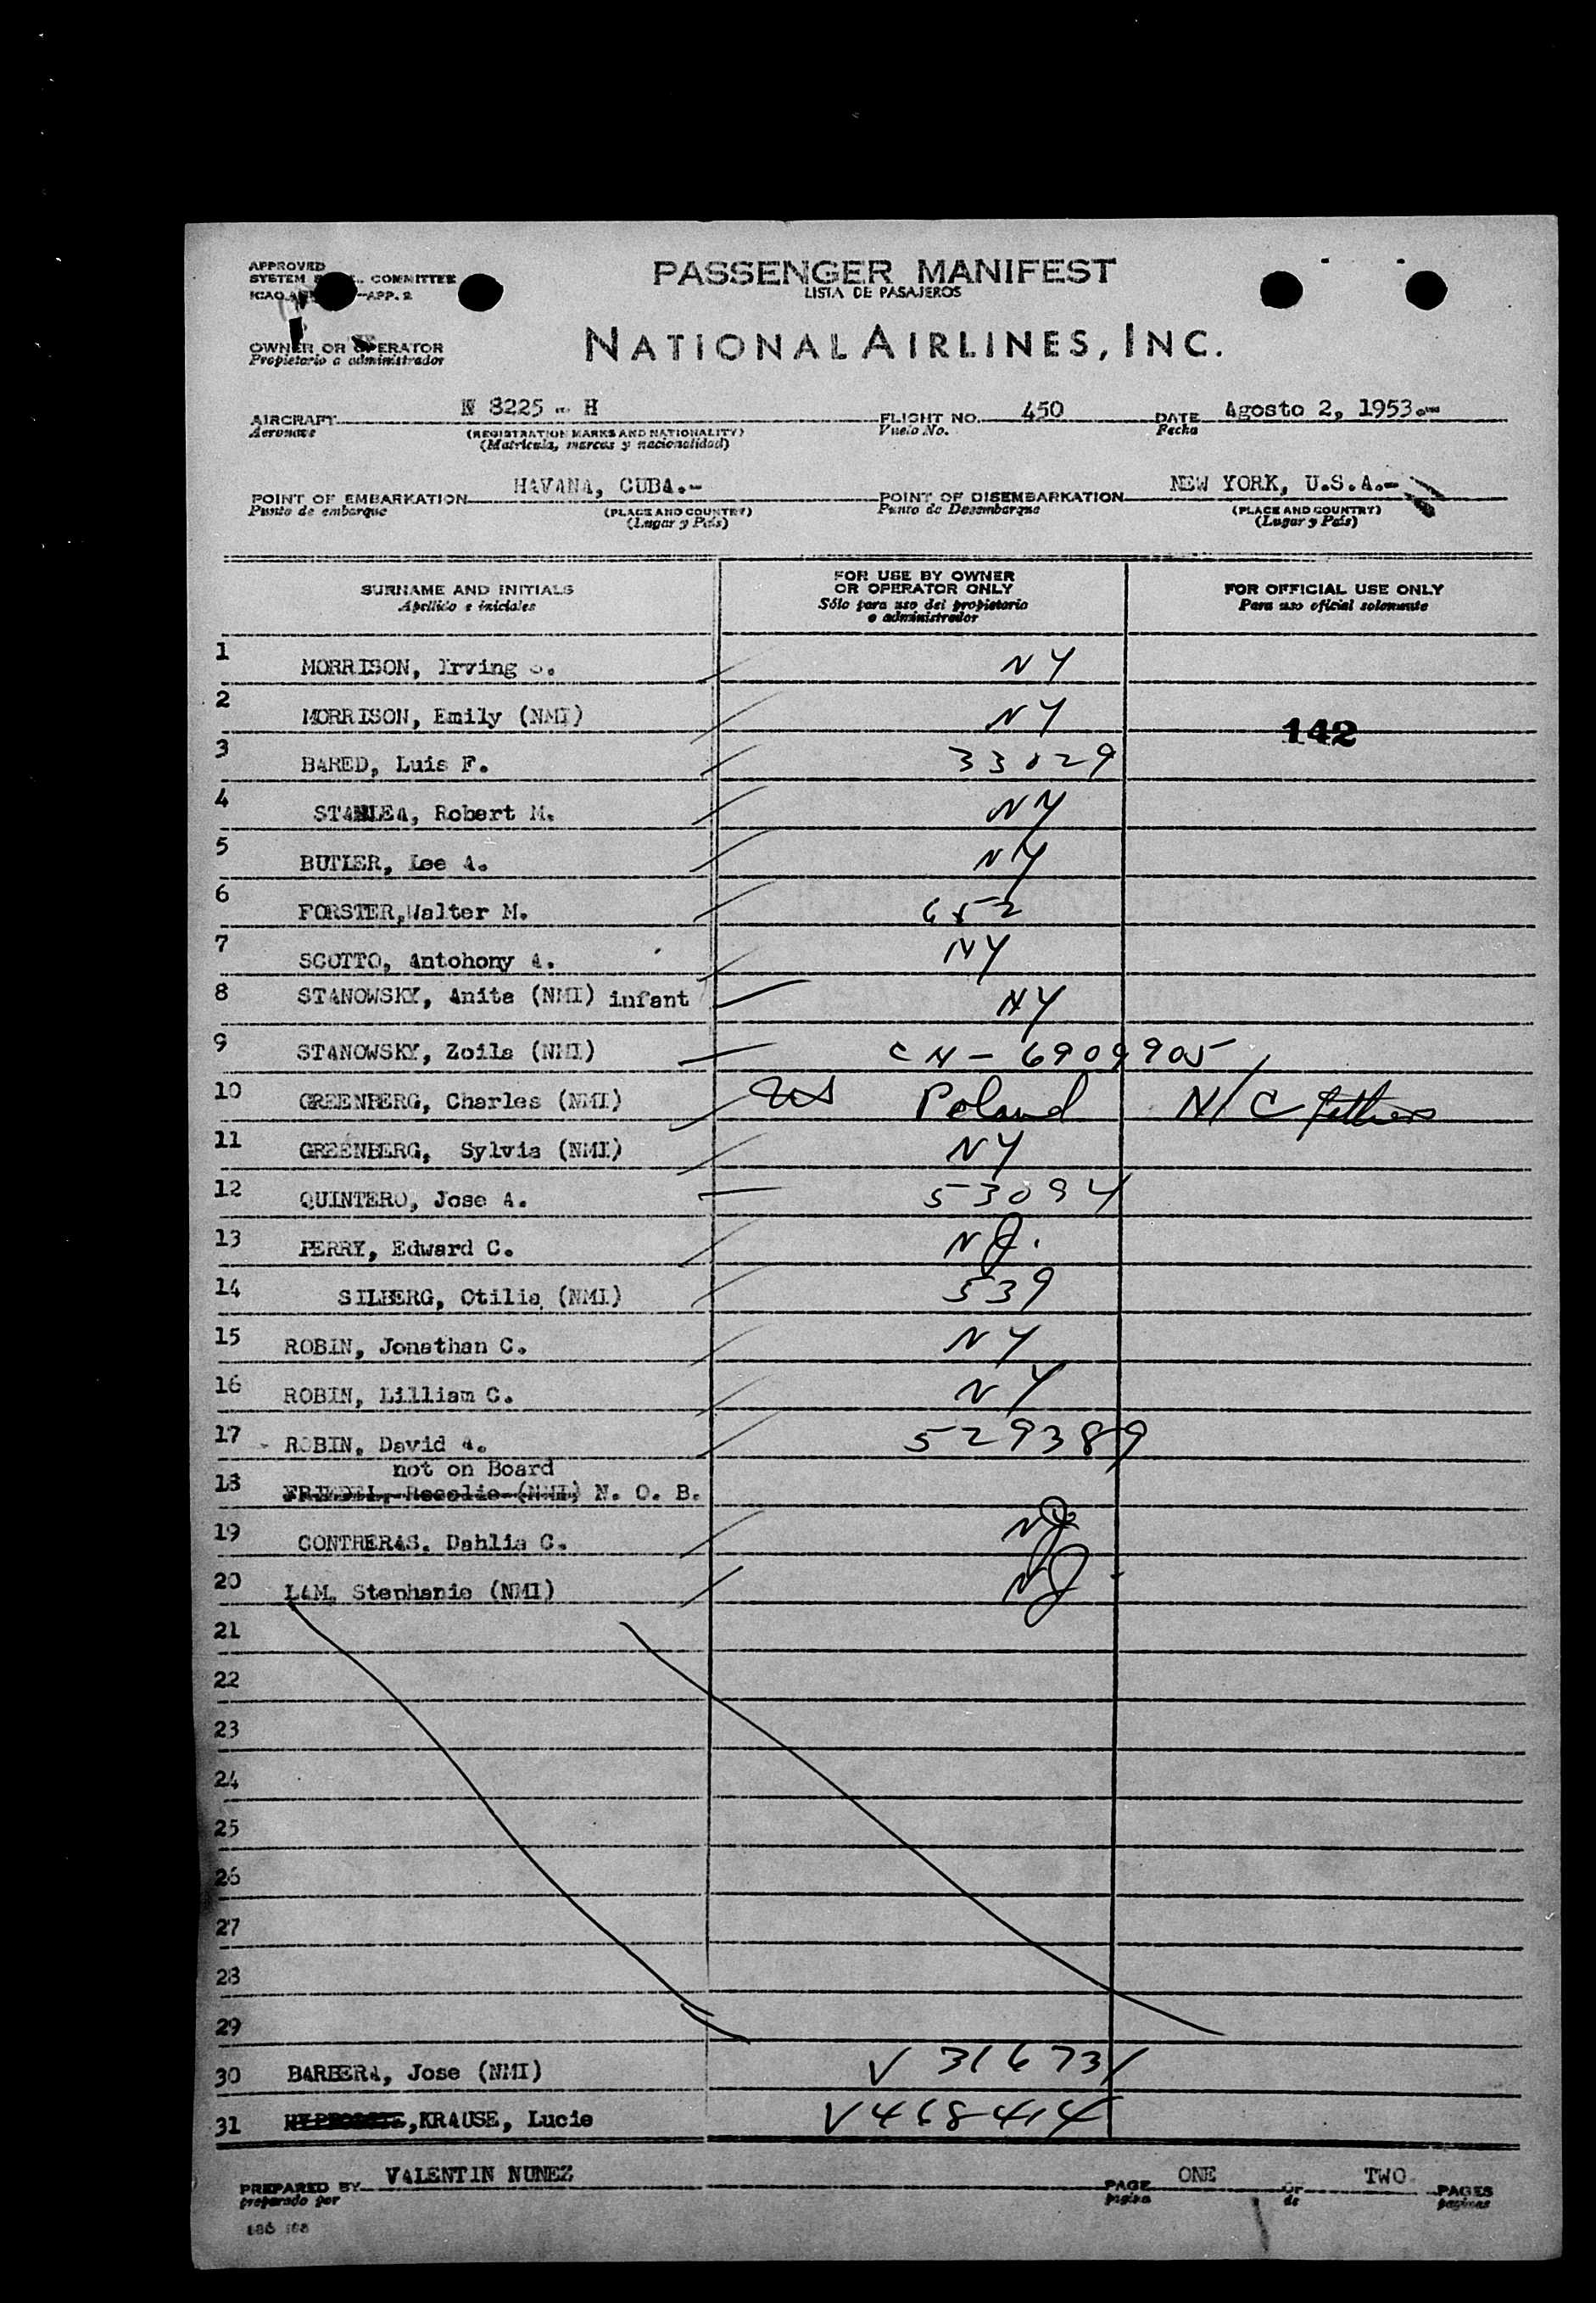 APPROVED
SYSTEM COMMITTEE
ICAO APP. 2
PASSENGER MANIFEST
LISTA DE PASAJEROS
OWNER OR OPERATOR
Propietario o administrador
NATIONAL AIRLINES, INC.
AIRCRAFT N 8225 - H FLIGHT NO. 450 DATE Agosto 2, 1953.-
Aeronave (REGISTRATION MARKS AND NATIONALITY) Vuelo No. Fecha
(Matricula, marcas y nacionalidad)
POINT OF EMBARKATION HAVANA, CUBA.- POINT OF DISEMBARKATION NEW YORK, U.S.A.-
Punto de embarque (PLACE AND COUNTRY) Punto de Desembarque (PLACE AND COUNTRY)
(Lugar y País) (Lugar y País)
SURNAME AND INITIALS
Apellido e iniciales
FOR USE BY OWNER
OR OPERATOR ONLY
Sólo para uso del propietario
o administrador
FOR OFFICIAL USE ONLY
Para uso oficial solamente
1 MORRISON, Irving S. NY
2 MORRISON, Emily (NMI) NY 142
3 BARED, Luis F. 33029
4 Robert M. NY
5 BUTLER, Lee A. NY
6 FORSTER,Walter M. 652
7 SCOTTO, Antohony A. NY
8 STANOWSKY, Anita (NMI) infant NY
9 STANOWSKY, Zoila (NMI) CN - 6909905
10 GREENBERG, Charles (NMI) US Poland N/C
11 GREENBERG, Sylvia (NMI) NY
12 QUINTERO, Jose A. 53094
13 PERRY, Edward C. NJ.
14 SILBERG, Otilia (NMI) 539
15 ROBIN, Jonathan C. NY
16 ROBIN, Lilliam C. NY
17 - ROBIN, David A. 529389
not on Board
18 (NMI) N. O. B.
19 CONTRERAS. Dahlia C. NJ
20 LAM, Stephanie (NMI) NJ
21
22
23
24
25
26
27
28
29
30 BARBERA, Jose (NMI) V 316731
31 ,KRAUSE, Lucie V468414
PREPARED BY VALENTIN NUNEZ PAGE ONE OF TWO. PAGES
preparado por página de paginas